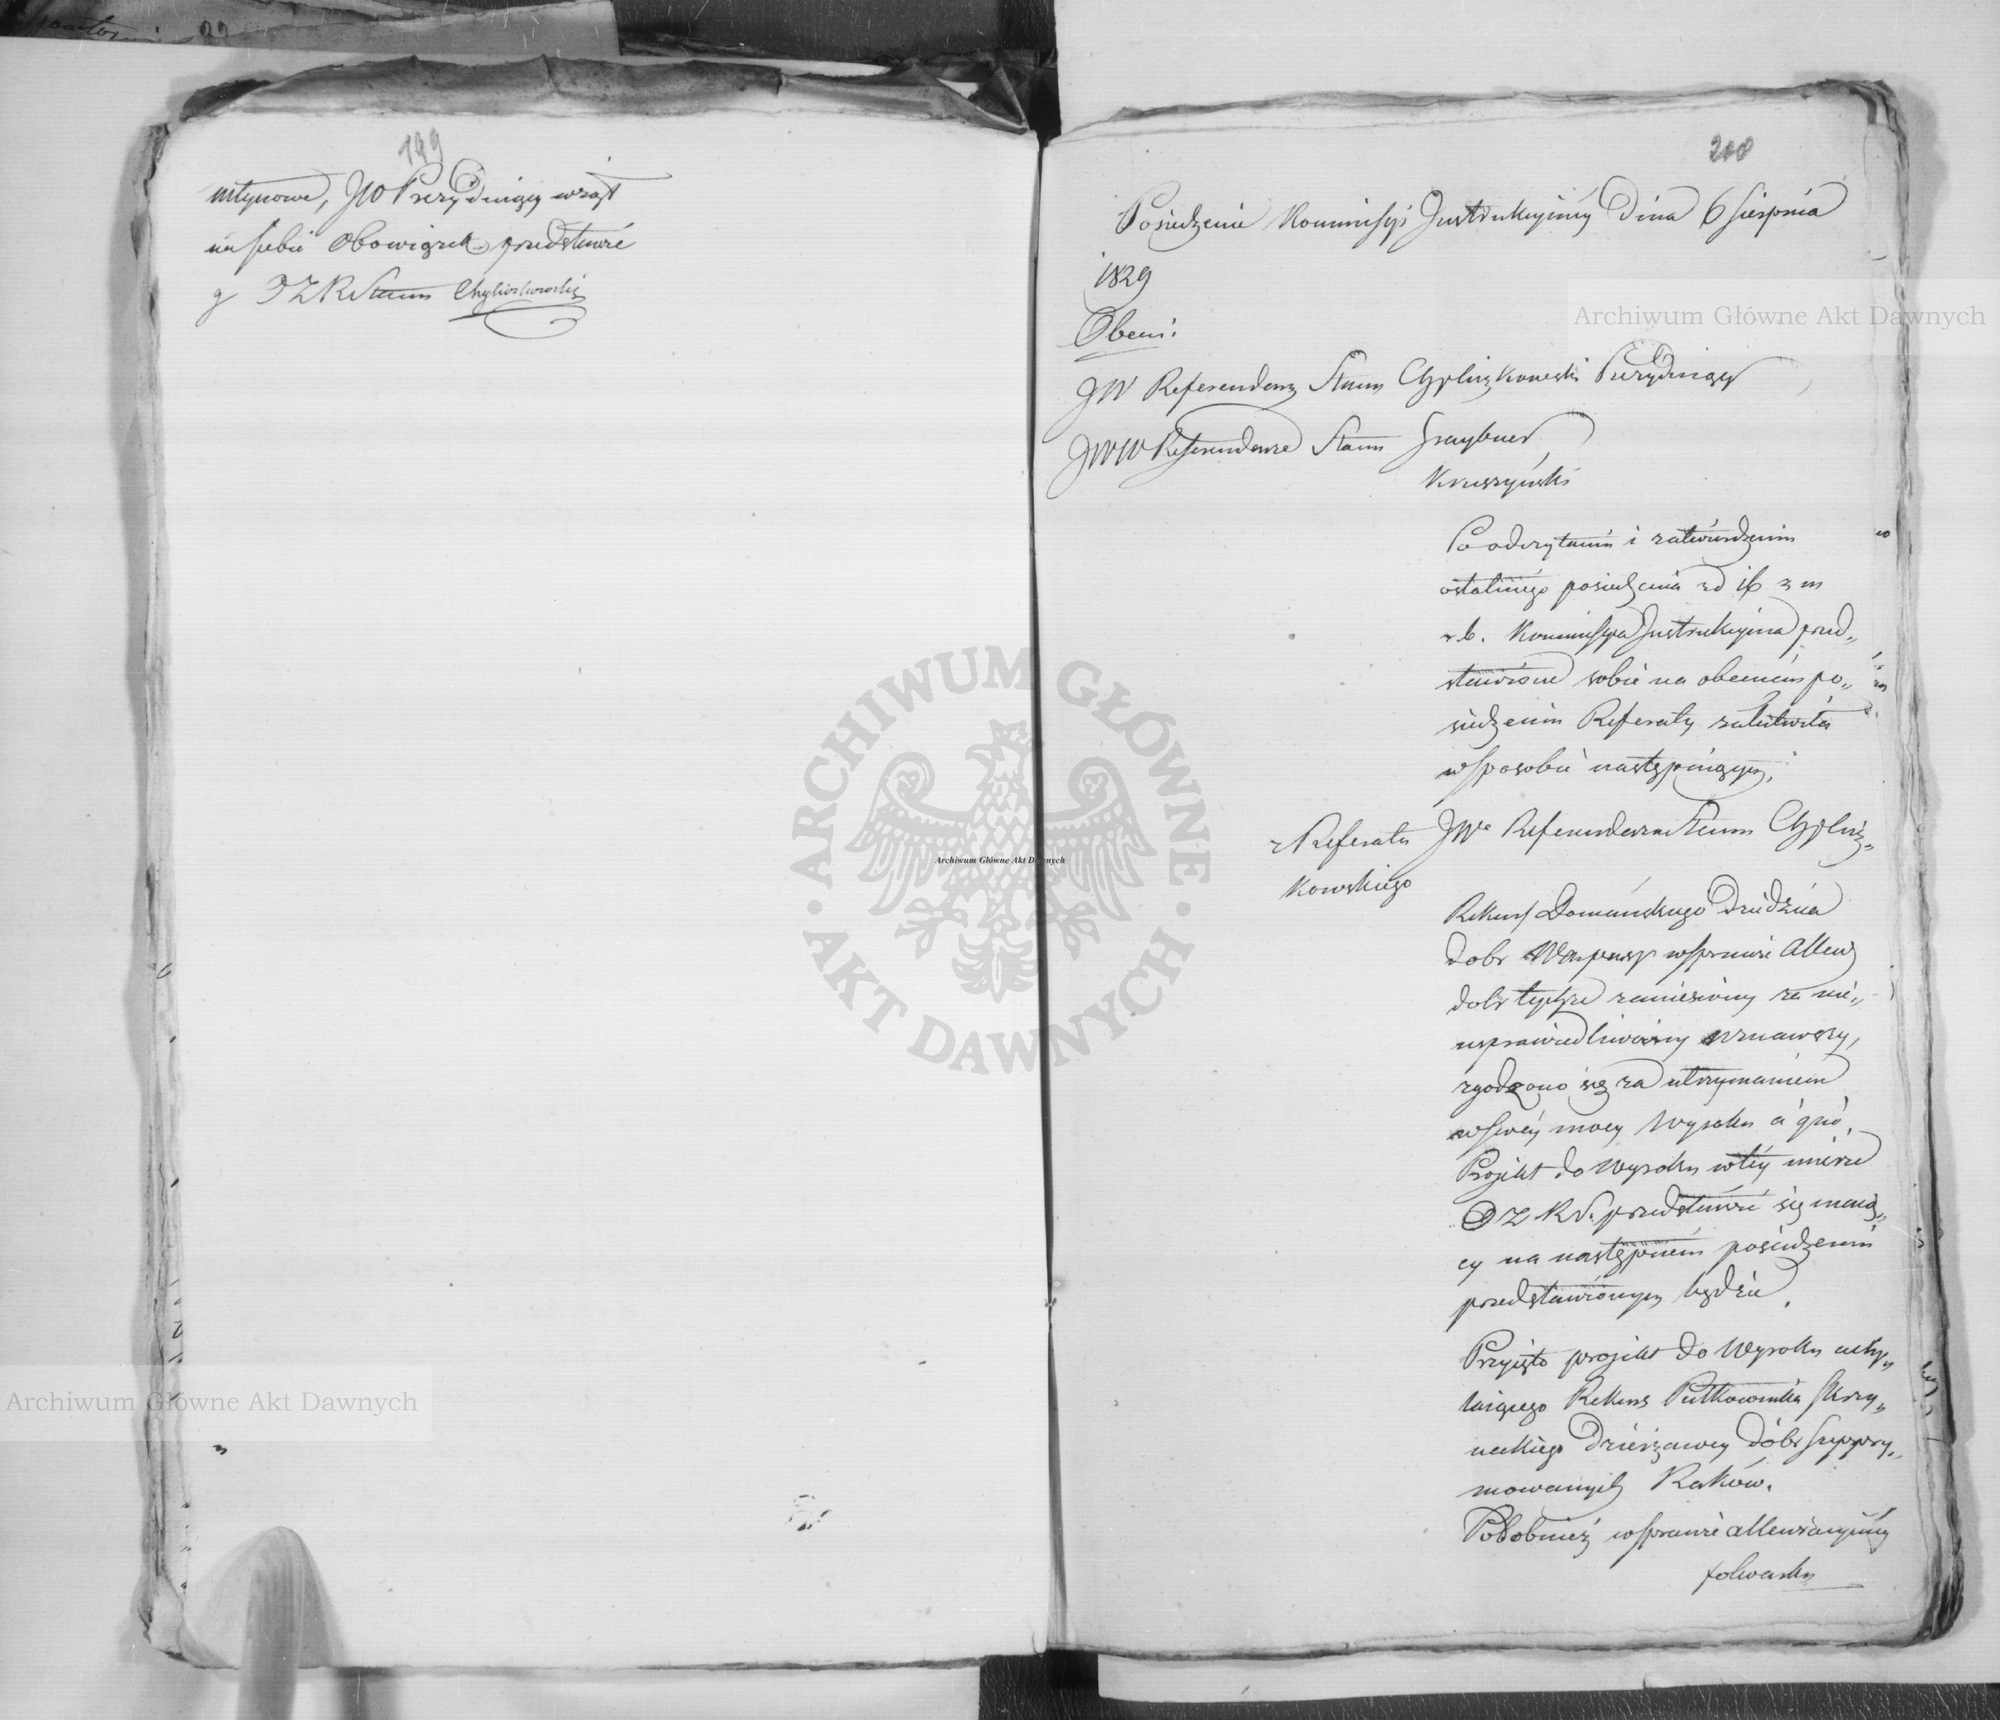 199
młynowe, JW Prezyduiący wziął
na siebie Obowiązek przedstawić
g DZRStanu Chyliczkowski
200
Posiedzenie Kommissyi Instrukcyiney Dnia 6 Sierpnia
1829
Obecni:
JW Referendarz Stanu Chyliczkowski Prezyduiący
JWW Referendarze Stanu Graybner
Kruszyński
Po odczytaniu i zatwierdzeniu
ostatniego posiedzenia z d 16 z m
r b. Kommissya Instrukcyina przed„
stawione sobie na obecnem po„
siedzeniu Referaty załatwiła
w sposobie następuiącym,
z Referatu JWo Referendarza Stanu Chylicz„
kowskiego
Rekurs Domańskiego Dziedzica
dobr w sprawie Allew
dobr tychże zaniesiony za nie„
usprawiedliwiony uznawszy,
zgodzono się za utrzymaniem
w swéy mocy Wyroku a quo,
Projekt do Wyroku w téy mierze
DZRS. przedstawić się maią„
cy na następnem posiedzeniu
przedstawionym będzie.
Przyięto projekt do Wyroku uchy„
laiącego Rekurs Pułkownika Skrzy„
neckiego Dzierżawcy dóbr suppry„
mowanych Raków.
Podobnież w sprawie allewiacyiney
folwarku
Archiwum Główne Akt Dawnych
Archiwum Główne Akt Dawnych
Archiwum Główne Akt Dawnych
ARCHIWUM GŁÓWNE AKT DAWNYCH